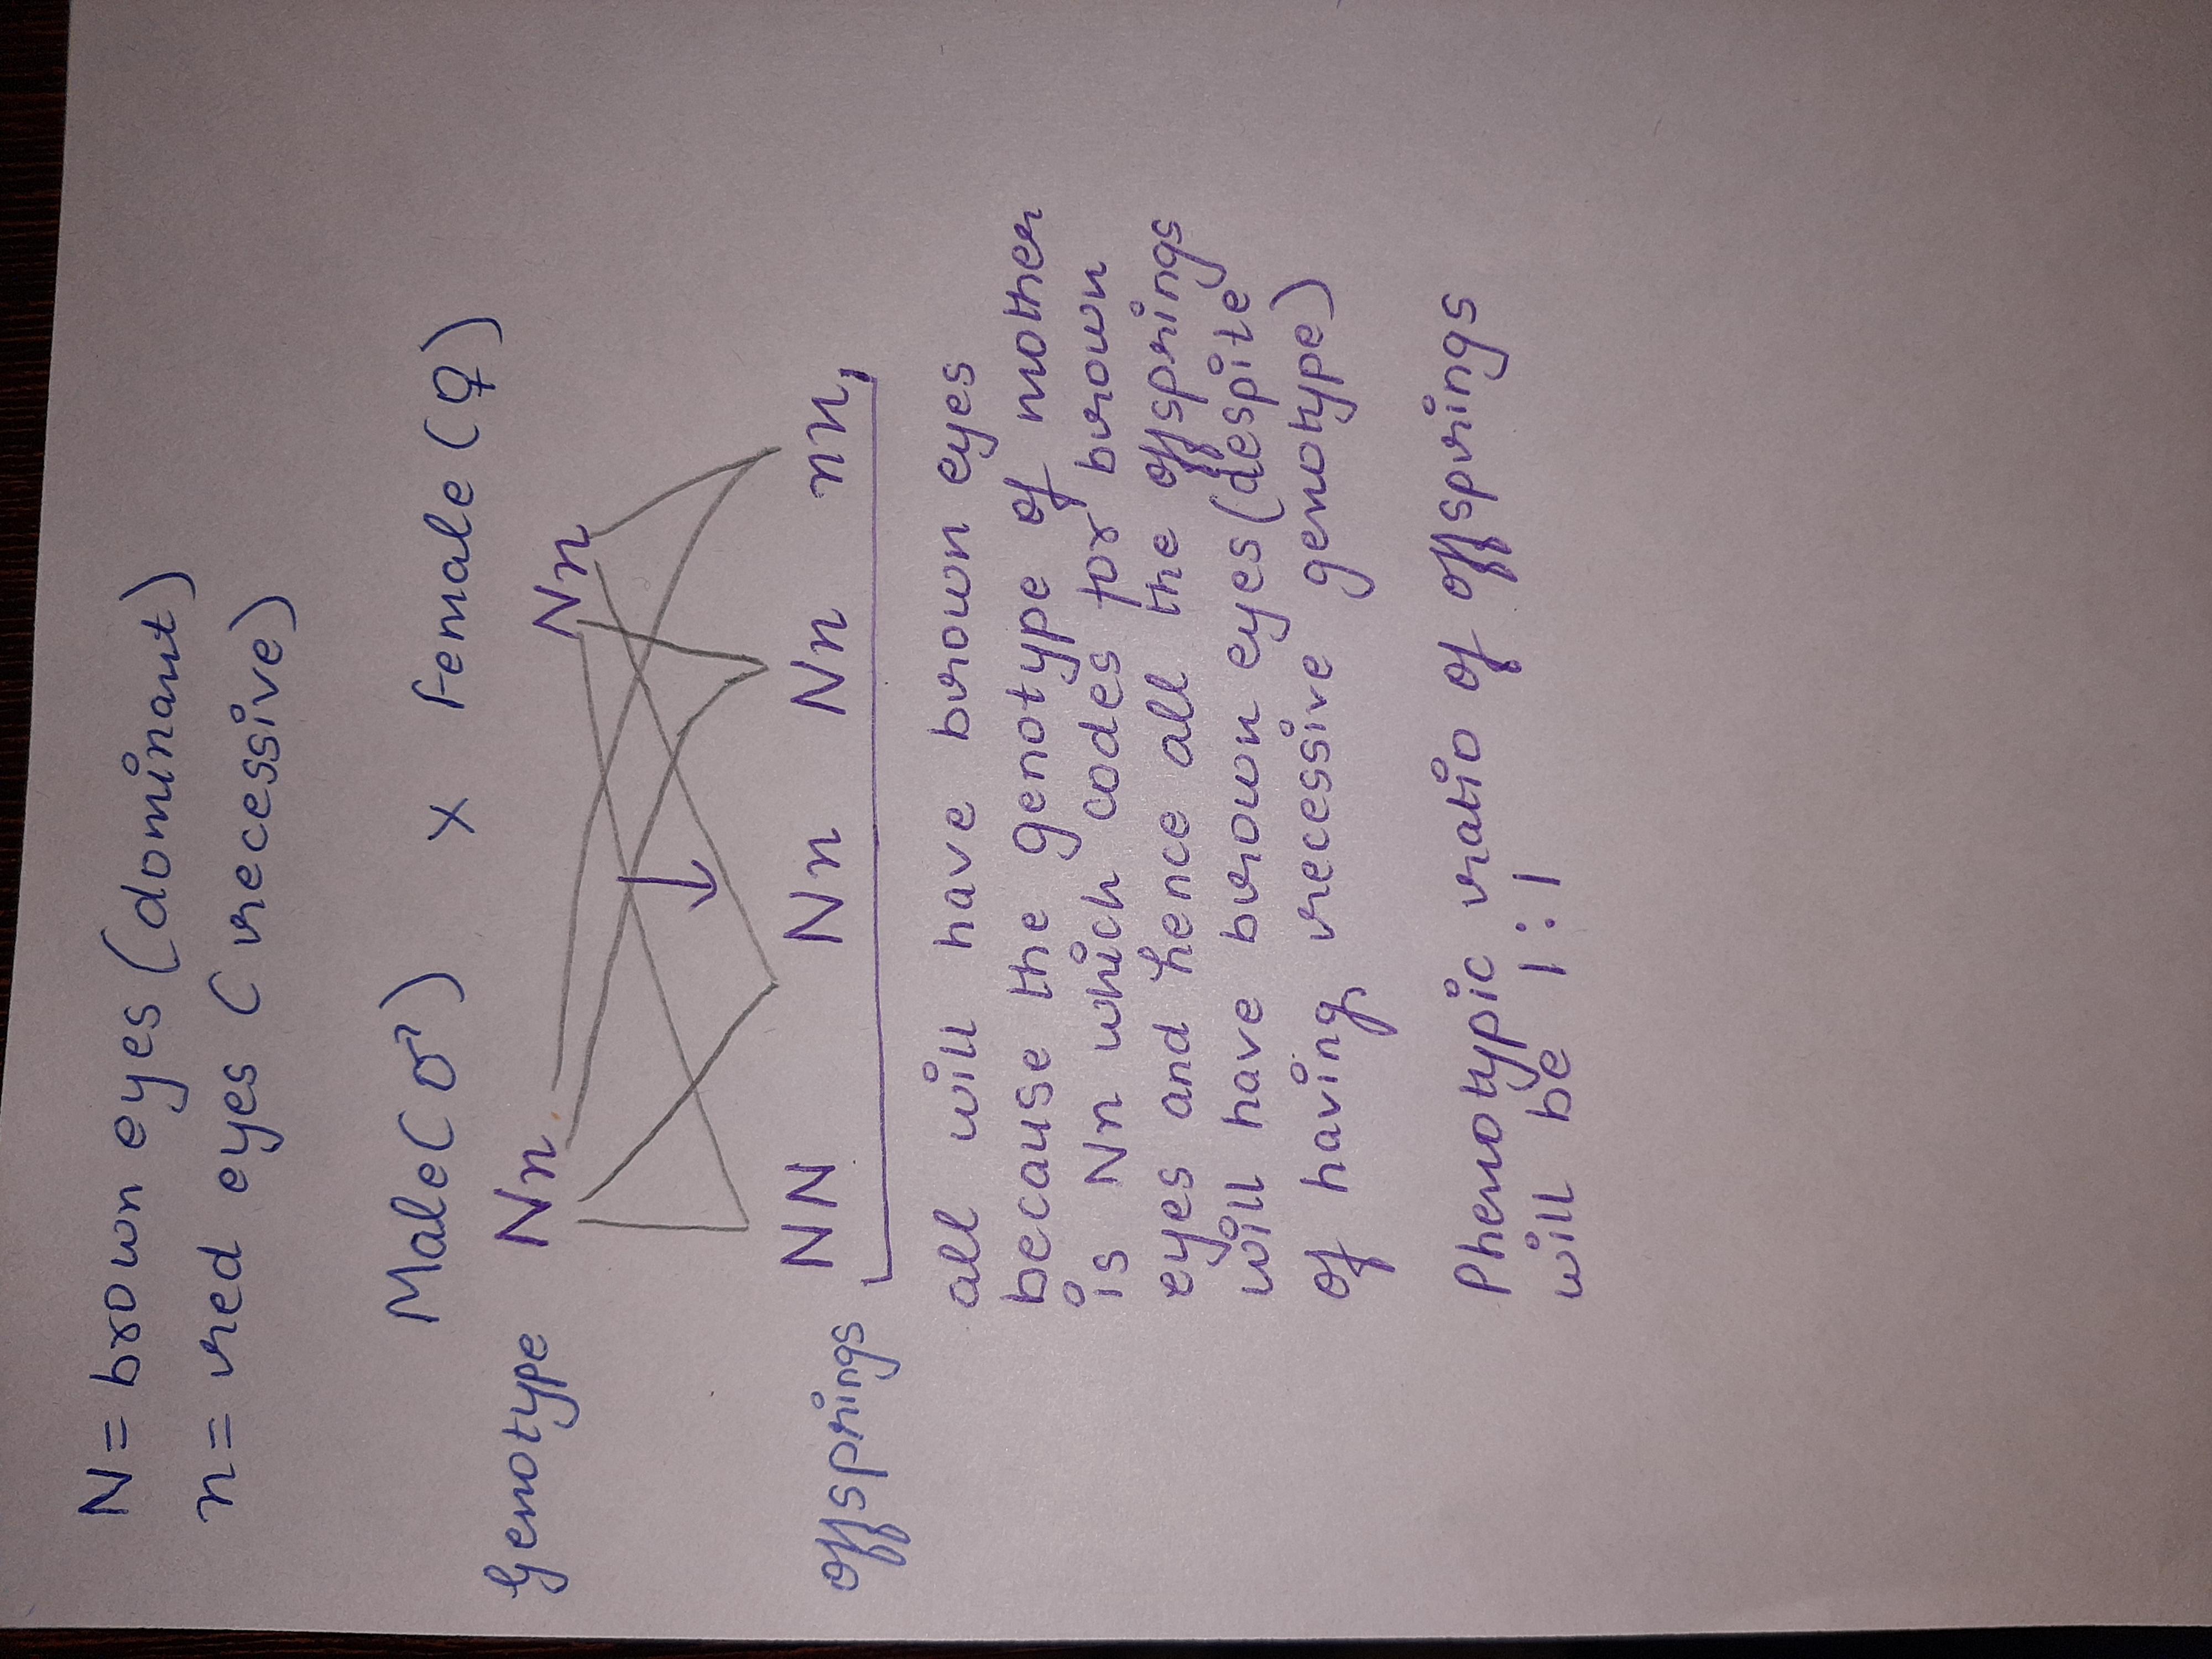 N = brown eyes (dominant)
n = red eyes (recessive)
Male (♂) x Female (♀)
Genotype Nn Nn
offsprings NN Nn Nn nn
all will have brown eyes
because the genotype of mother
is Nn which codes for brown
eyes and hence all the offsprings
will have brown eyes (despite
of having recessive genotype)
Phenotypic ratio of offsprings
will be 1:1